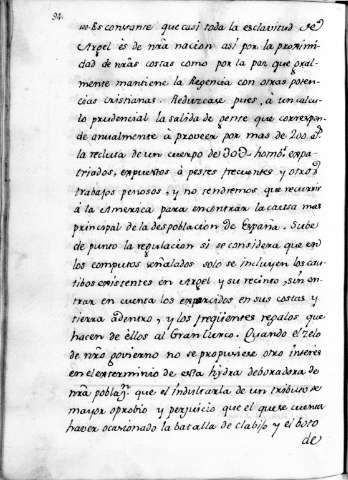 94.
Es constante que casi toda la esclavitud de
Argel és de nrâ nacion asi por la proximi
dad de nrâs costas como por la paz que gral-
mente mantiene la Regencia con otras poten
cias cristianas. Reduzcase pues, á un calcu
lo prudencial la salida de gente que correspon
de anualmente à proveer por mas de 200 as.
la recluta de un cuerpo de 30 hombs. expa
triados, expuestos à pestes frecuentes y otros
trabajos penosos, y no tendremos que recurrir
à la America para encontrar la causa mas
principal de la despoblacion de España. Sube
de punto la regulacion si se considera que en
los computos señalados solo se incluyen los cau
tibos existentes en Argel y su recinto, sin en
trar en cuenta los esparcidos en sus costas y
tierra adentro, y los freqüentes regalos que
hacen de ellos al Gran Turco. Quando el zelo
de nrô govierno no se propusiese otro interes
en el exterminio de esta hydra deboradora de
nrâ poblaon. que el indultarla de un tributo de
mayor oprobio y perjuicio que el que se cuenta
haver ocasionado la batalla de clabijo y el boto
de